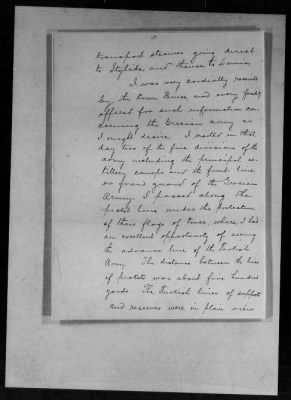 transport steamer going direct
to Stylida, and thence to Lamia.
I was very cordially received
by the Crown Prince, and every facility
offered for such information con-
cerning the Grecian Army as
I might desire. I visited on that
day two of the five divisions of the
army including the principal ar-
tillery camps and the front line
or grand guard of the Grecian
Army. I passed along the
picket line under the protection
of their flags of truce, where I had
an excellent opportunity of seeing
the advance line of the Turkish
Army. The distance between the lines
of pickets was about five hundred
yards. The Turkish lines of supports
and reserves were in plain view